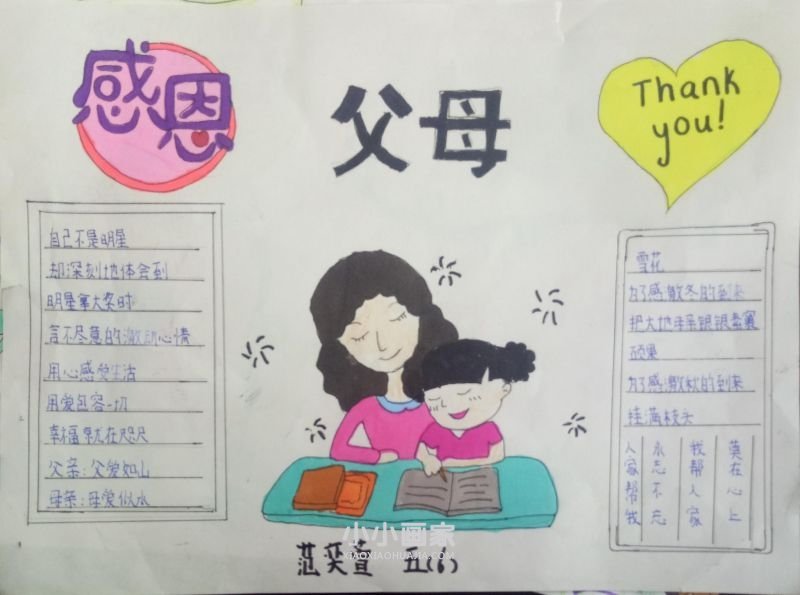 感恩
父母
Thank
you!
自己不是明星
却深刻地体会到
明星拿大奖时
言不尽意的激动心情
用心感受生活
用爱包容一切
幸福就在咫尺
父亲:父爱如山
母亲:母爱似水
雪花
为了感激冬的到来
把大地母亲银银素裹
硕果
为了感激秋的到来
挂满枝头
人家帮我
永志不忘
我帮人家
莫在心上
小小画家
XIAOXIAOHUAJIA.COM
范奕萱 五(6)